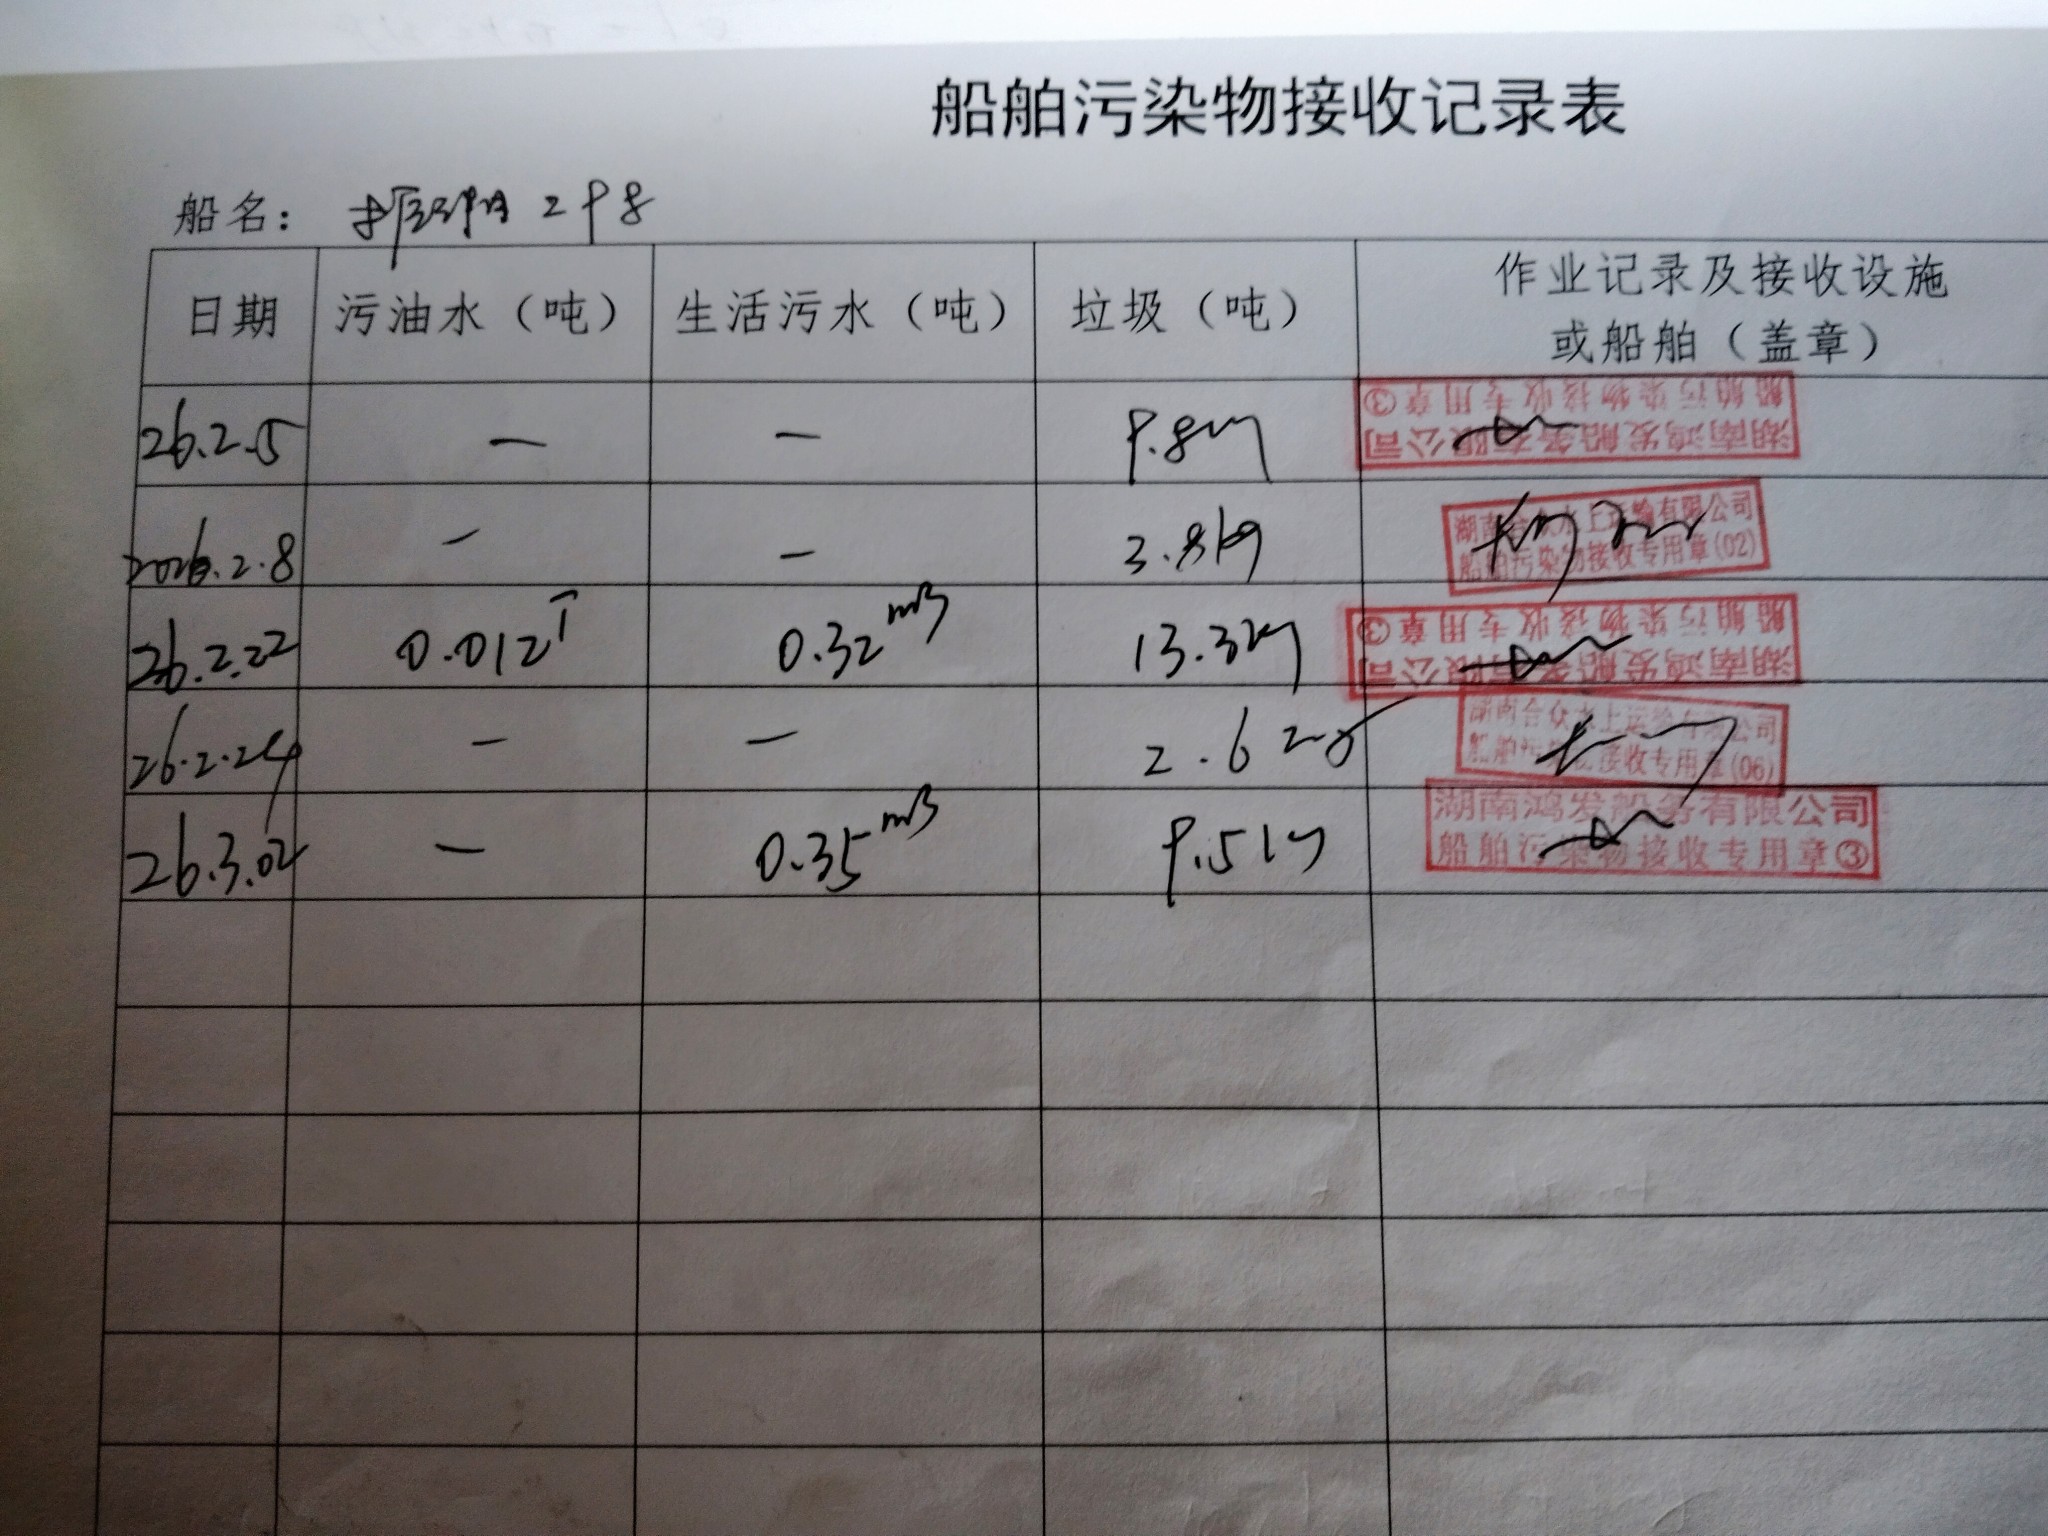 船舶污染物接收记录表
船名： 298
日期 污油水（吨） 生活污水（吨） 垃圾（吨） 作业记录及接收设施
或船舶（盖章）
26.2.5 — — 9.8
船舶污染物接收专用章③
湖南鸿发船务有限公司
2026.2.8 — — 3.8kg
湖南合众水上运输有限公司
船舶污染物接收专用章(02)
26.2.22 0.012T 0.32m3 13.3
船舶污染物接收专用章③
湖南鸿发船务有限公司
26.2.24 — — 2.6
湖南合众水上运输有限公司
船舶污染物接收专用章(06)
26.3.02 — 0.35m3 9.5
湖南鸿发船务有限公司
船舶污染物接收专用章③